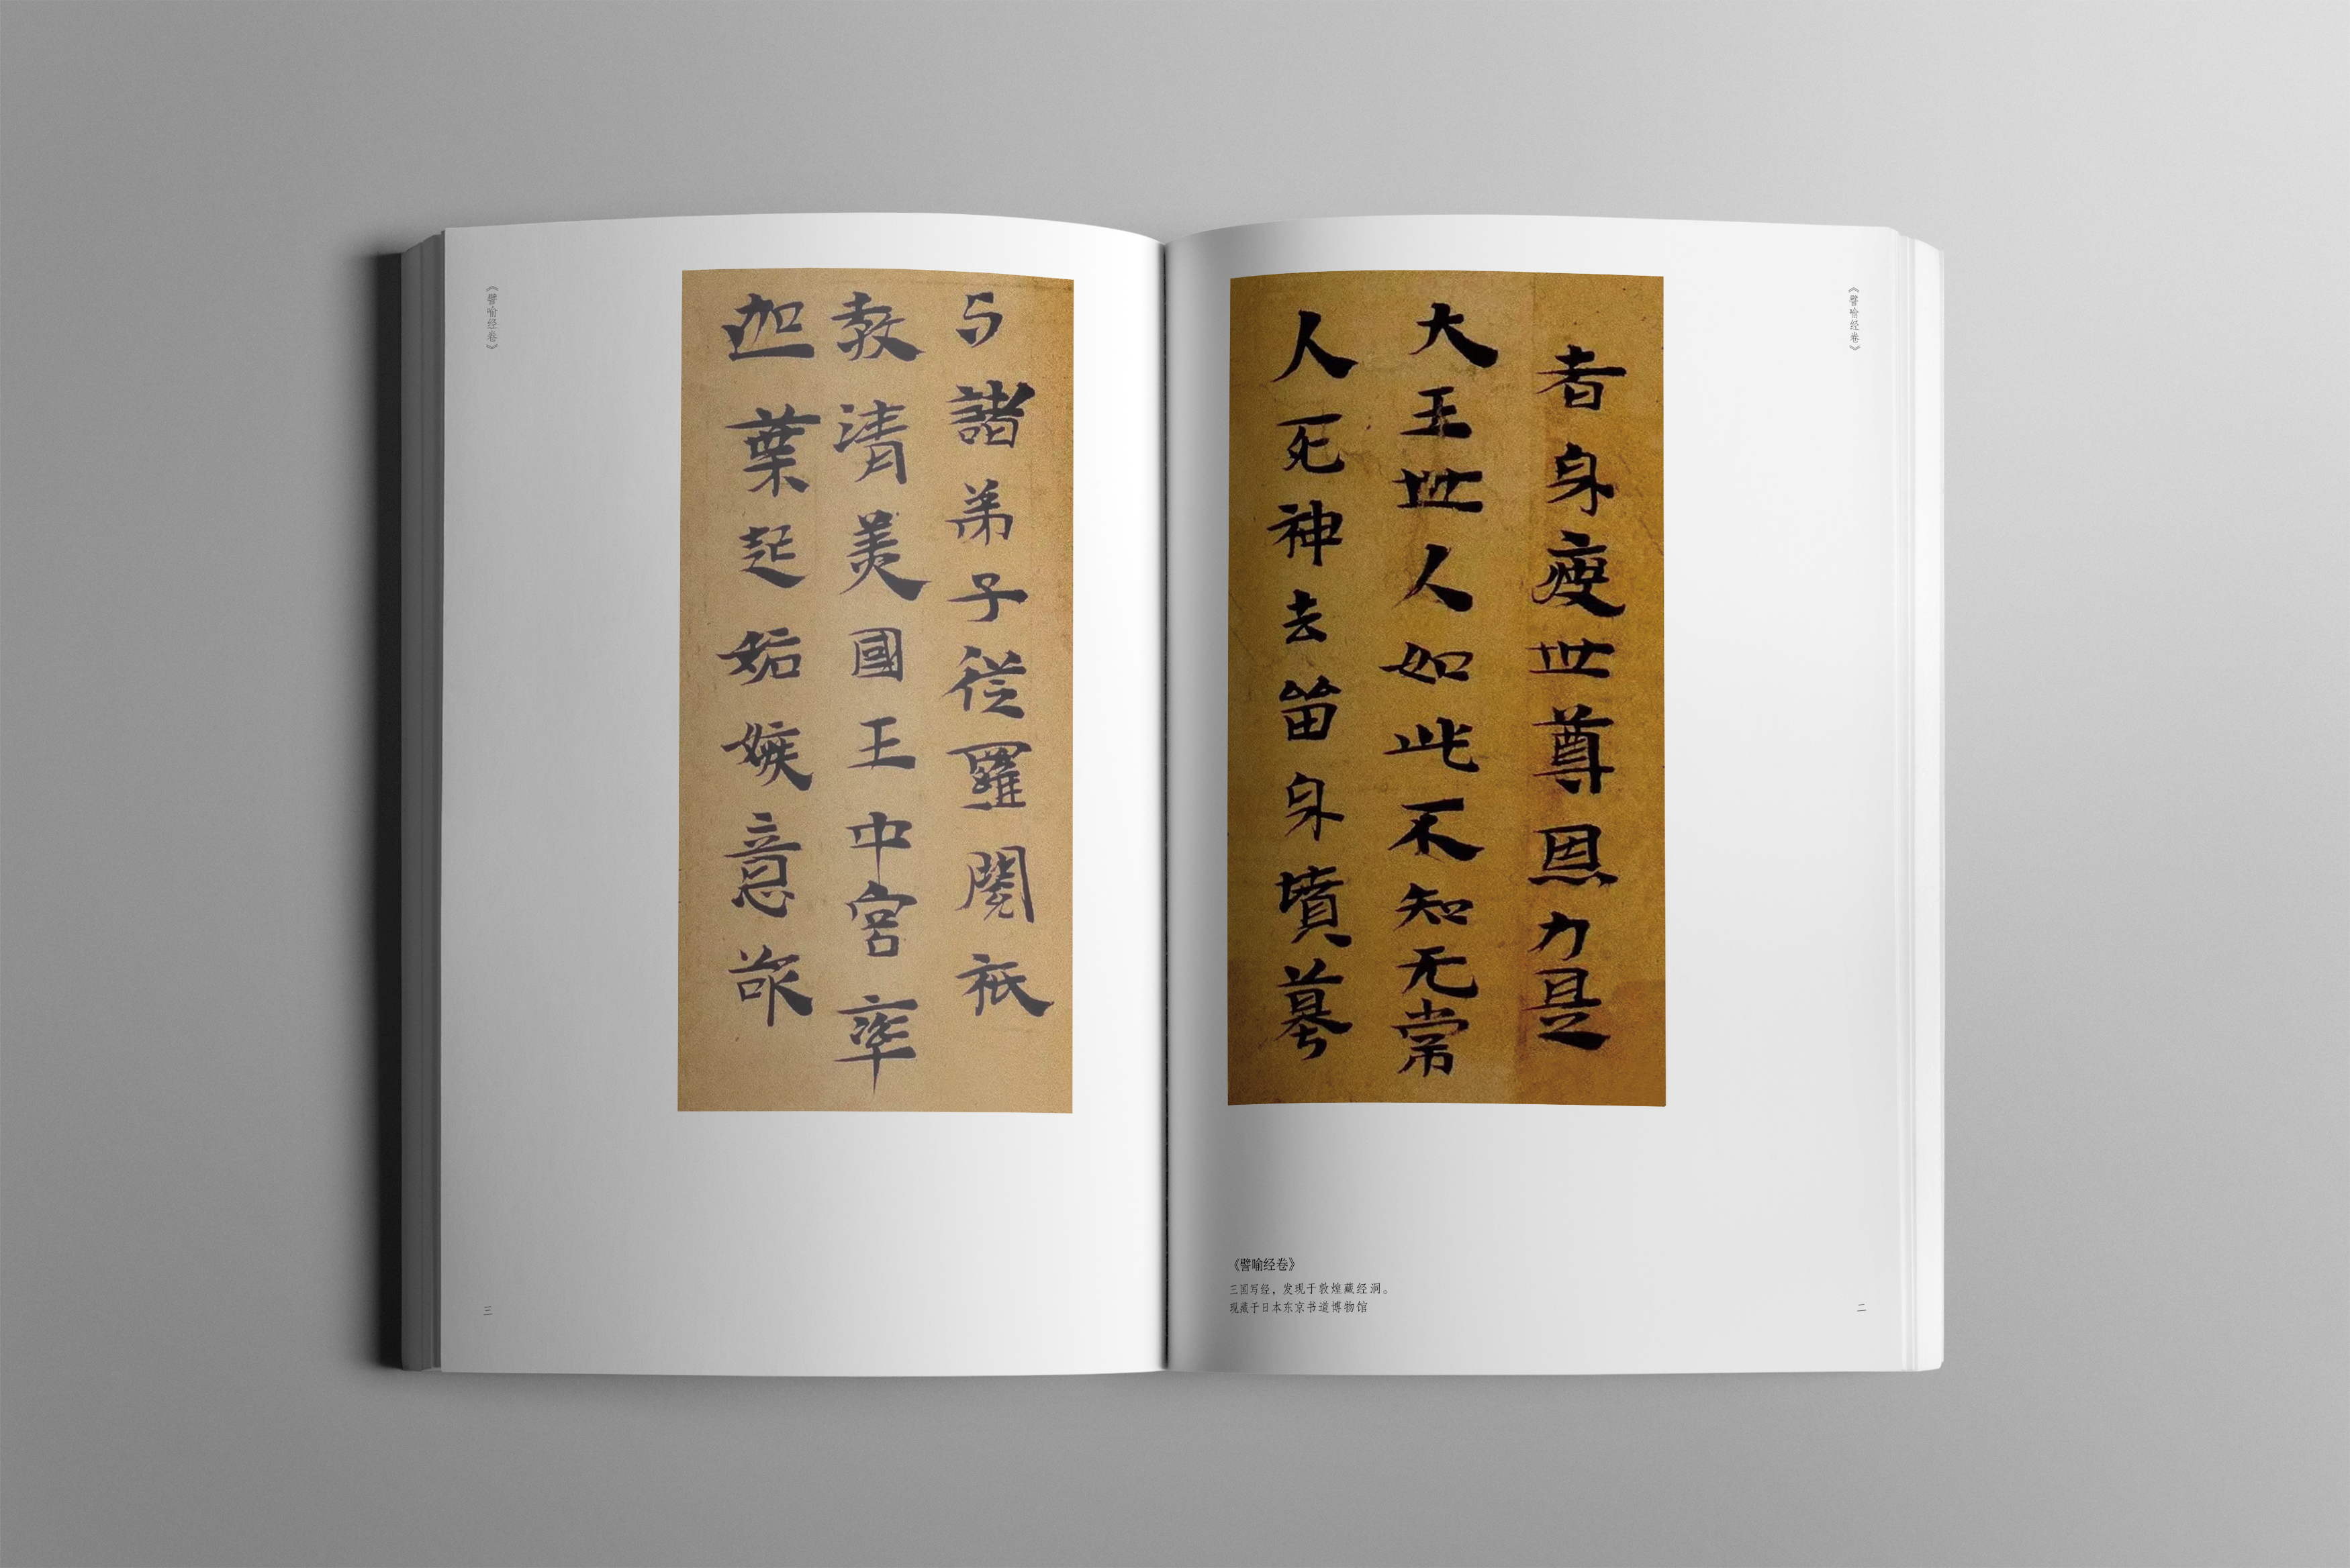 《譬喻经卷》
者身瘦世尊恩力是
大王世人如此不知无常
人死神去留身墳墓
《譬喻经卷》
三国写经，发现于敦煌藏经洞。
现藏于日本东京书道博物馆
二
《譬喻经卷》
与諸弟子従羅閱祇
教清美國王中宮率
迦葉起妬嫉意欲
三